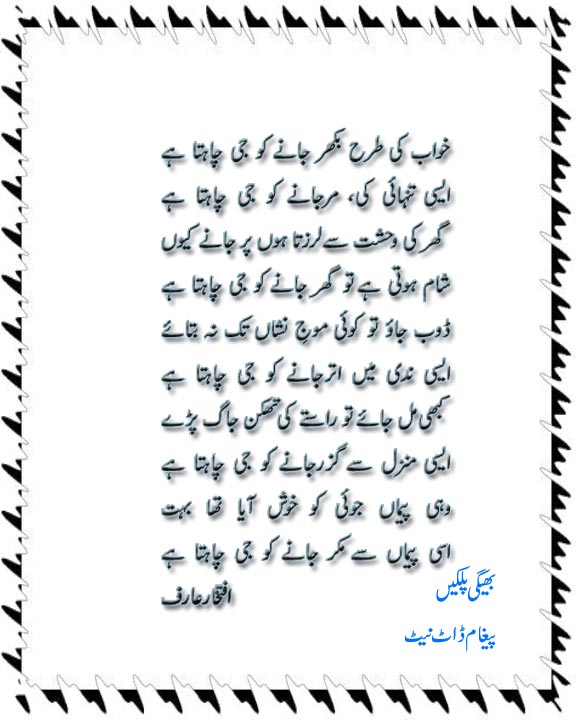 خواب کی طرح بکھر جانے کو جی چاہتا ہے
ایسی تنہائی کی، مرجانے کو جی چاہتا ہے
گھر کی وحشت سے لرزتا ہوں پر جانے کیوں
شام ہوتی ہے تو گھر جانے کو جی چاہتا ہے
ڈوب جاؤ تو کوئی موج نشاں تک نہ بتائے
ایسی ندی میں اترجانے کو جی چاہتا ہے
کبھی مل جائے تو راستے کی تھکن جاگ پڑے
ایسی منزل سے گزرجانے کو جی چاہتا ہے
وہی پیماں جوئی کو خوش آیا تھا بہت
اسی پیماں سے مکر جانے کو جی چاہتا ہے
افتخارعارف
بھیگی پلکیں
پیغام ڈاٹ نیٹ